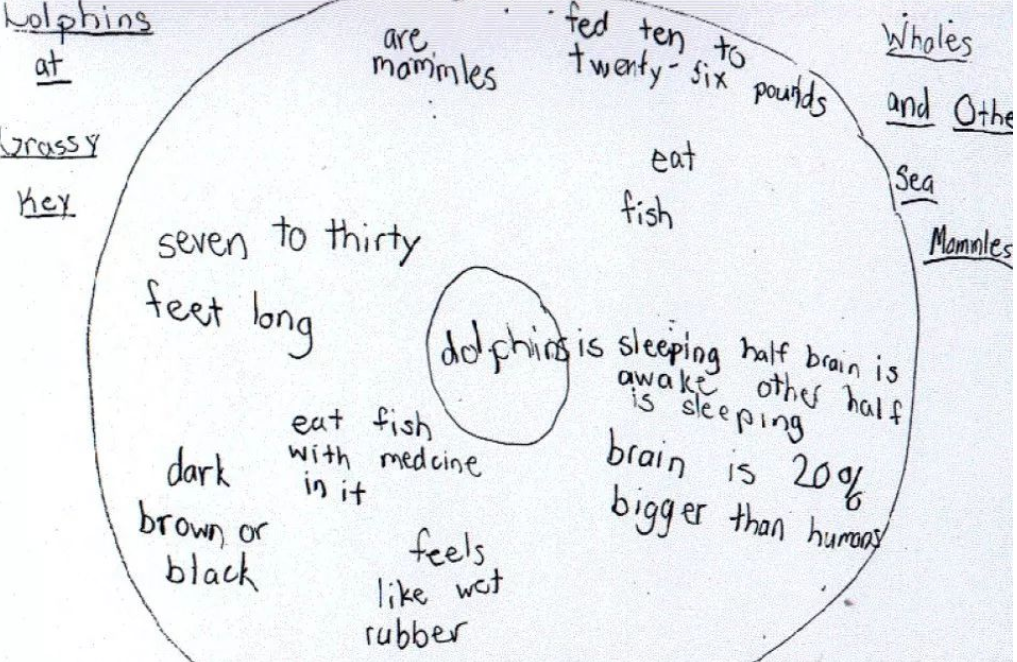 Dolphins
at
Grassy
Key
are
mammles
fed ten to
twenty-six pounds
Whales
and Othe
Sea
Mammles
eat
fish
seven to thirty
feet long
dolphins is sleeping half brain is
awake other half
is sleeping
eat fish
with medcine
in it
brain is 20%
bigger than humans
dark
brown or
black
feels
like wet
rubber